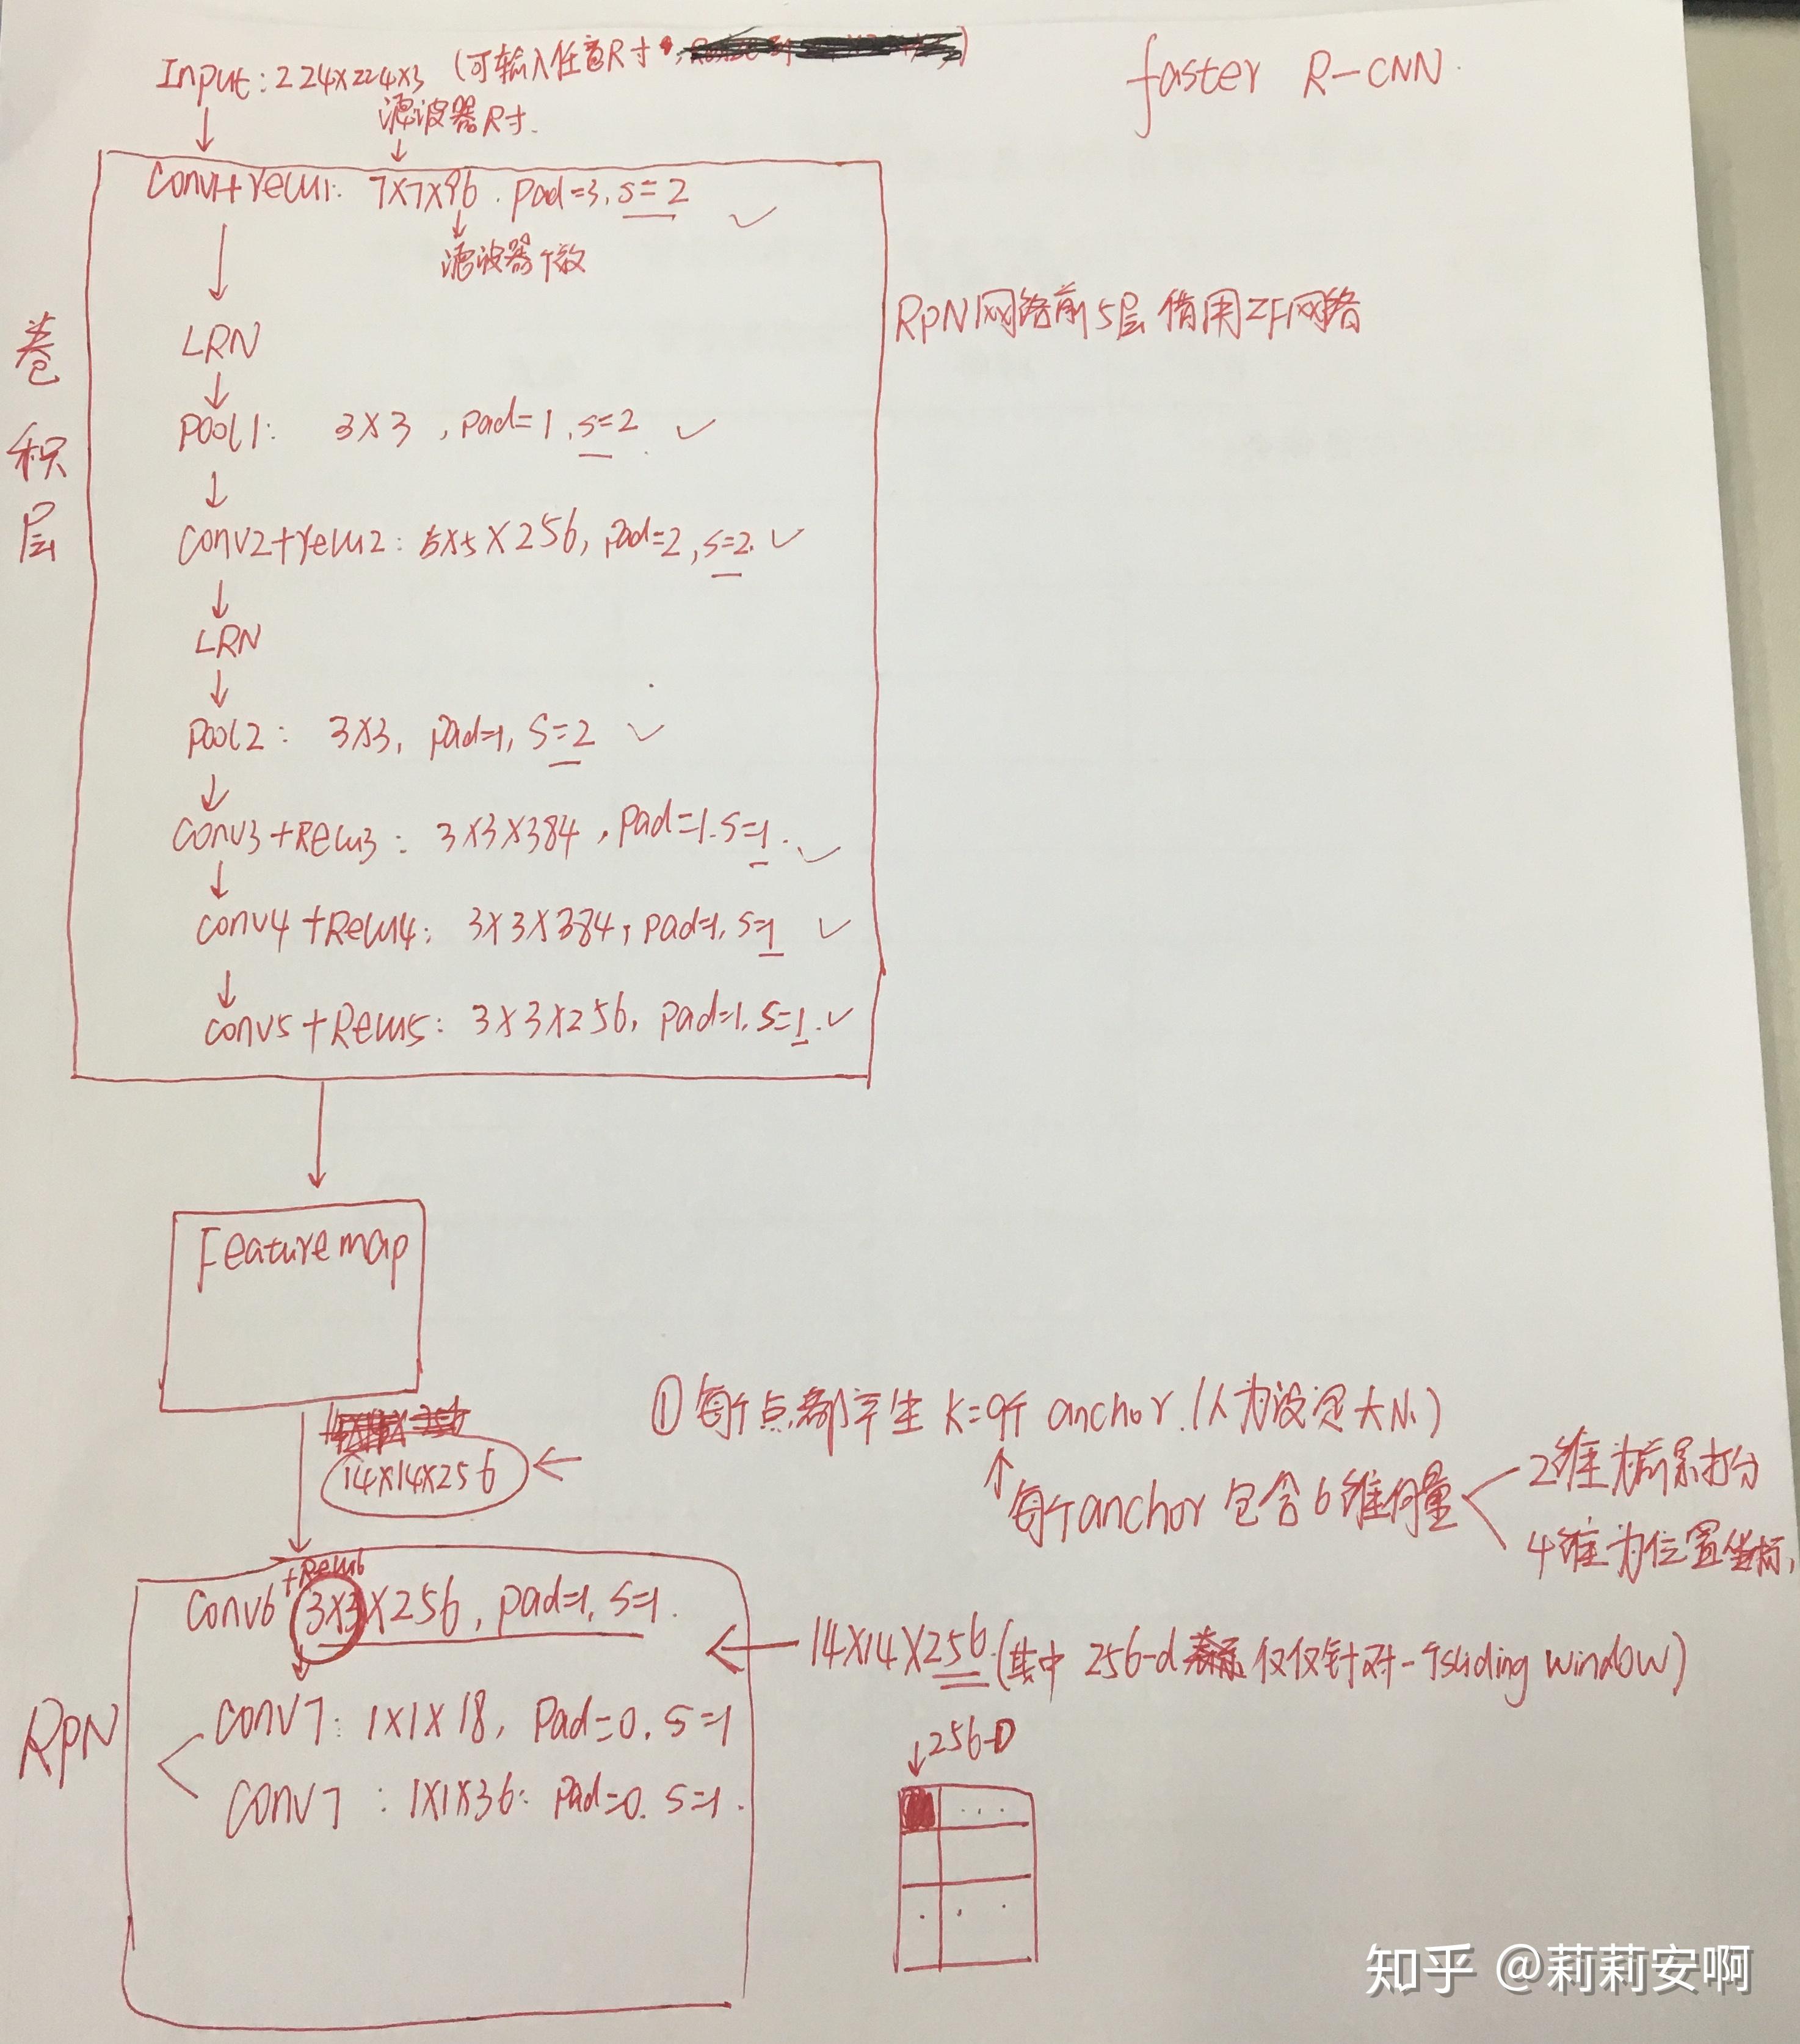 Input: 224×224×3 (可输入任意尺寸
faster R-CNN.
滤波器尺寸.
conv1+relu1: 7×7×96. pad=3, s=2
滤波器个数
卷积层
RPN网络前5层借用ZF网络
LRN
pool1: 3×3, pad=1, s=2
conv2+relu2: 5×5×256, pad=2, s=2.
LRN
pool2: 3×3, pad=1, s=2
conv3+Relu3: 3×3×384, pad=1. s=1.
conv4+Relu4: 3×3×384, pad=1, s=1
conv5+Relu5: 3×3×256, pad=1, s=1.
Feature map
①每个点都产生 k=9个 anchor.(人为设定大小)
14×14×256
每个anchor 包含6维向量
2维为前景打分
4维为位置坐标,
+Relu6
conv6 3×3×256, pad=1, s=1.
14×14×256.(其中 256-d 表示仅仅针对一个sliding window)
RPN
conv7: 1×1×18, Pad=0. s=1
conv7: 1×1×36: Pad=0. s=1.
256-D
知乎 @莉莉安啊